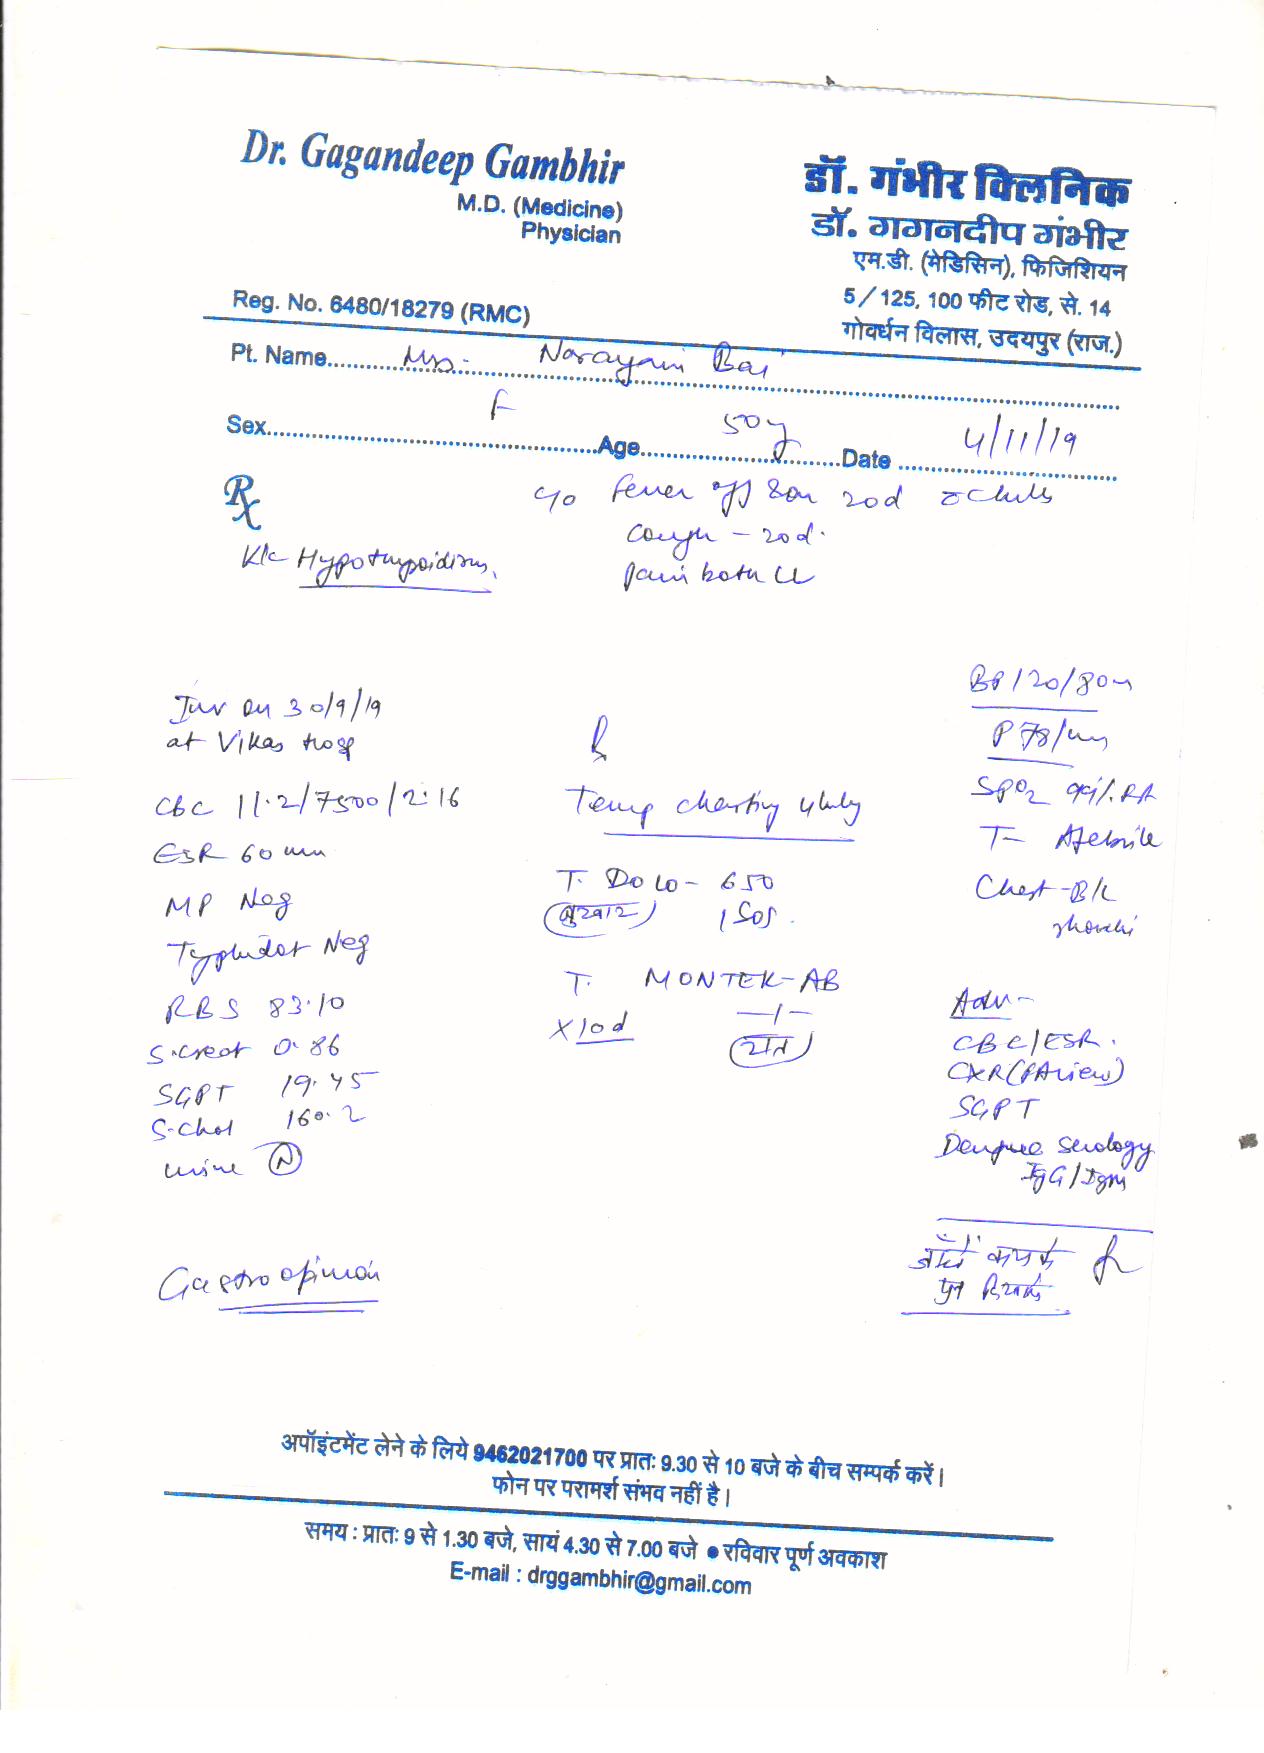 Dr. Gagandeep Gambhir
M.D. (Medicine)
Physician
Reg. No. 6480/18279 (RMC)
डॉ. गंभीर क्लिनिक
डॉ. गगनदीप गंभीर
एम.डी. (मेडिसिन), फिजिशियन
5/125, 100 फीट रोड, से. 14
गोवर्धन विलास, उदयपुर (राज.)
Pt. Name Mrs. Narayani Bai
Sex F Age 50y Date 4/11/19
Rx
c/o Fever off & on 20d c̄ chills
Cough - 20d.
Pain both LL
K/c Hypothyroidism
Inv on 30/9/19
at Vikas Hosp
CBC 11.2/7500/2.16
ESR 60 mm
MP Neg
Typhidot Neg
RBS 83.10
S.creat 0.86
SGPT 19.45
S.chol 160.2
Urine (N)
Gastro opinion
R
Temp charting 4hrly
T. DOLO-650
(बुखार) 1 SOS.
T. MONTEK-AB
—/—
X 10d (रात)
BP 120/80
P 78/m
SPO2 99%. RA
T- Afebrile
Chest - B/L
rhonchi
Adv-
CBC/ESR.
CXR (PA view)
SGPT
Dengue Serology
IgG/IgM
अपॉइंटमेंट लेने के लिये 9462021700 पर प्रातः 9.30 से 10 बजे के बीच सम्पर्क करें।
फोन पर परामर्श संभव नहीं है।
समय : प्रातः 9 से 1.30 बजे, सायं 4.30 से 7.00 बजे ● रविवार पूर्ण अवकाश
E-mail : drggambhir@gmail.com